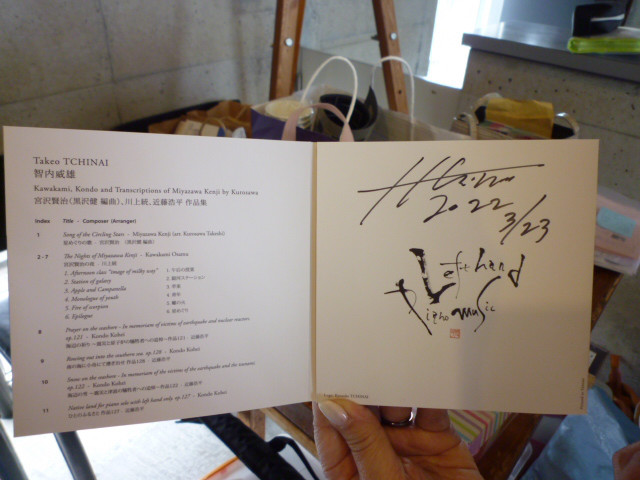 Takeo TCHINAI
智内威雄
Kawakami, Kondo and Transcriptions of Miyazawa Kenji by Kurosawa
宮沢賢治(黒沢健 編曲)、川上統、近藤浩平 作品集
Index Title - Composer (Arranger)
1 Song of the Circling Stars - Miyazawa Kenji (arr. Kurosawa Takeshi)
星めぐりの歌 - 宮沢賢治 (黒沢健 編曲)
2 - 7 The Nights of Miyazawa Kenji - Kawakami Osamu
宮沢賢治の夜 - 川上統
1. Afternoon class "image of milky way" 1. 午后の授業
2. Station of galaxy 2. 銀河ステーション
3. Apple and Campanella
4. Monologue of youth
5. Fire of scorpion 5. 蠍の火
6. Epilogue
8 Prayer on the seashore - In memoriam of victims of earthquake and nuclear reactors
op.121 - Kondo Kohei
9 Rowing out into the southern sea, op.128 - Kondo Kohei
10 Stone on the seashore - In memoriam of the victims of the earthquake and the tsunami
op.122 - Kondo Kohei
11 Native land for piano solo with left hand only, op.127 - Kondo Kohei
2022
3/23
Left hand
Piano music